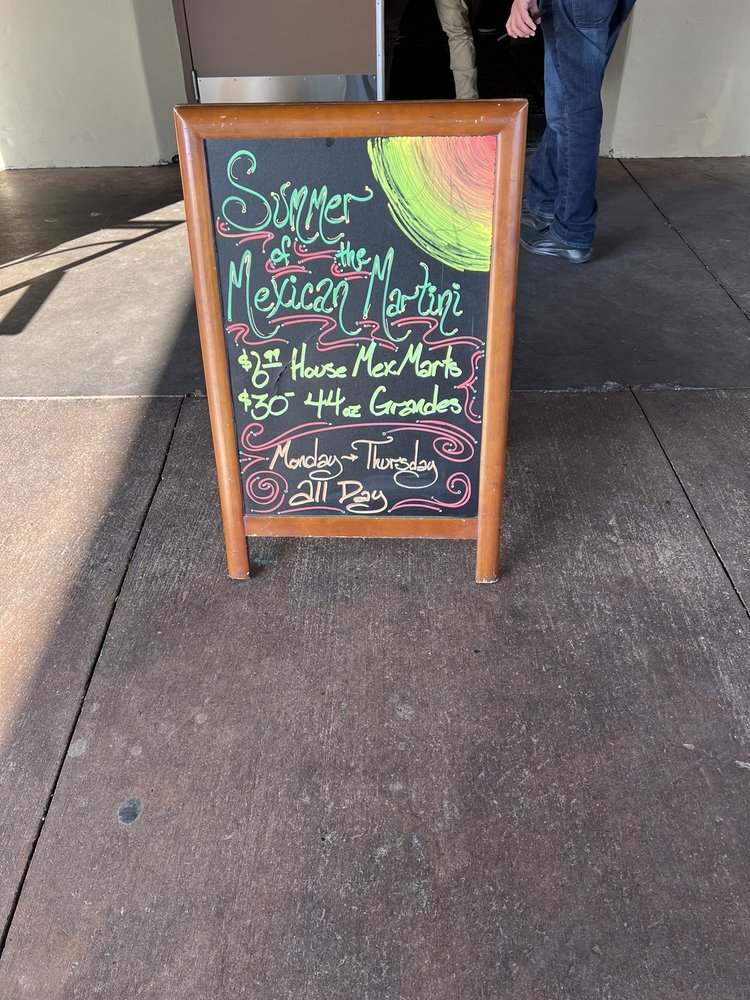 Summer
of the
Mexican Martini
$6.99 House MexMarts
$30- 44oz Grandes
Monday → Thursday
all Day